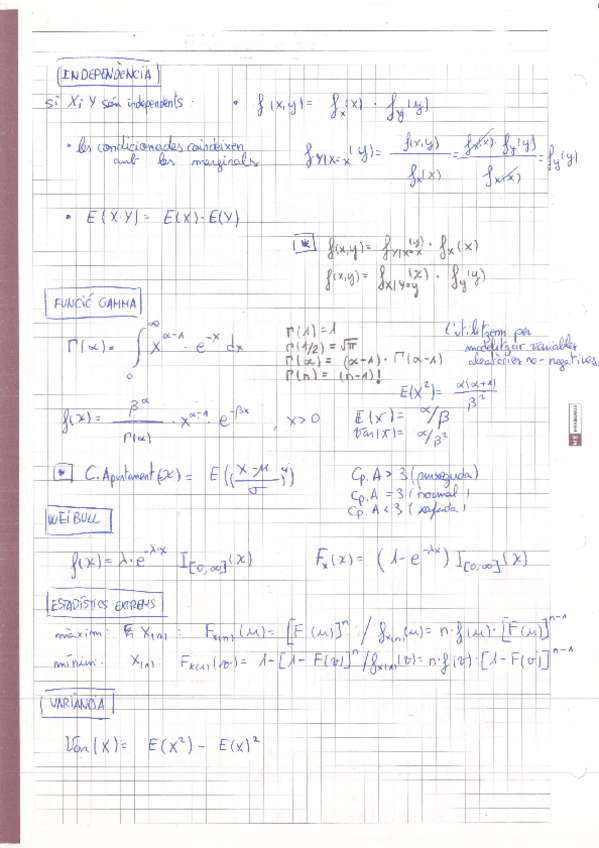 INDEPENDÈNCIA
Si X i Y són independents: • f(x,y) = fx(x) · fy(y)
• les condicionades coincideixen amb les marginals f Y|X=x (y) = f(x,y) / fx(x) = fx(x) · fy(y) / fx(x) = fy(y)
• E(X·Y) = E(X)-E(Y)
* f(x,y) = f Y|X=x (y) · fx(x)
f(x,y) = f X|Y=y (x) · fy(y)
FUNCIÓ GAMMA
Γ(α) = ∫₀^∞ x^(α-1) · e^(-x) dx
Γ(1) = 1
Γ(1/2) = √π
Γ(α) = (α-1) · Γ(α-1)
Γ(n) = (n-1)!
L'utilitzem per
modelitzar variables
aleatòries no-negatives.
E(X²) = α(α+1) / β²
f(x) = β^α / Γ(α) · x^(α-1) · e^(-βx) , x>0
E(X) = α/β
Var(X) = α/β²
* C. Apuntament(x) = E((X-μ / σ)⁴)
Cp. A > 3 (punxeguda)
Cp. A = 3 (normal)
Cp. A < 3 (xafada)
WEIBULL
f(x) = λ·e^(-λx) I[0,∞](x) Fx(x) = (1-e^(-λx)) I[0,∞](x)
ESTADÍSTICS EXTREMS
màxim: X(n): Fx(n)(u) = [F(u)]^n / fx(n)(u) = n·f(u)·[F(u)]^(n-1)
mínim: X(1): Fx(1)(v) = 1-[1-F(v)]^n / fx(1)(v) = n·f(v)·[1-F(v)]^(n-1)
VARIÀNCIA
Var(X) = E(X²) - E(X)²